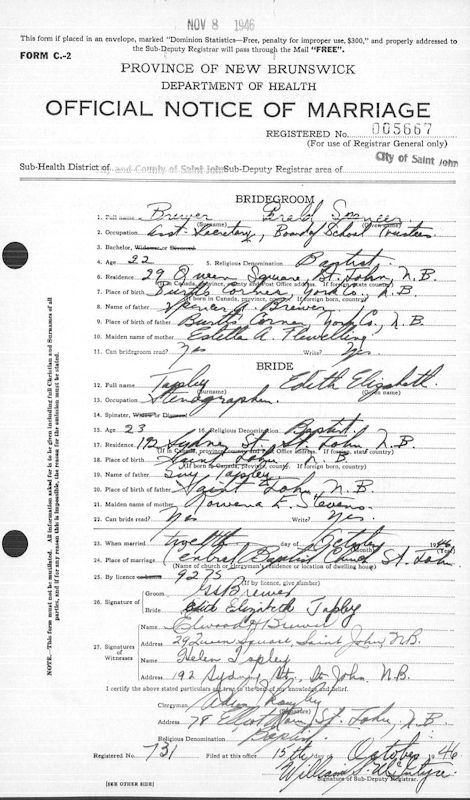 NOV 8 1946
This form if placed in an envelope, marked "Dominion Statistics—Free, penalty for improper use, $300," and properly addressed to
the Sub-Deputy Registrar will pass through the Mail "FREE".
FORM C.-2
PROVINCE OF NEW BRUNSWICK
DEPARTMENT OF HEALTH
OFFICIAL NOTICE OF MARRIAGE
REGISTERED No. 005667
(For use of Registrar General only)
City of Saint John
Sub-Health District of City and County of Saint John Sub-Deputy Registrar area of
BRIDEGROOM
1. Full name Brewer Gerald Spencer
(Surname) (Given name)
2. Occupation Asst. Secretary, Board of School Trustees
3. Bachelor, Widower or Divorced
4. Age 22 5. Religious Denomination Baptist
6. Residence 29 Queen Square St. John, N.B.
(If in Canada, province, county and Post Office address. If foreign, state country)
7. Place of birth Burtts Corner York Co., N.B.
(If born in Canada, province, county. If foreign born, country)
8. Name of father Spencer A. Brewer
9. Place of birth of father Burtts Corner York Co., N.B.
10. Maiden name of mother Estella A. Flewelling
11. Can bridegroom read? Yes Write? Yes.
BRIDE
12. Full name Tapley Edith Elizabeth
(Surname) (Given name)
13. Occupation Stenographer
14. Spinster, Widow or Divorced
15. Age 23 16. Religious Denomination Baptist
17. Residence 192 Sydney St., St. John N.B.
(If in Canada, province, county and Post Office address. If foreign, state country)
18. Place of birth Saint John N.B.
(If born in Canada, province, county. If foreign born, country)
19. Name of father Guy Tapley
20. Place of birth of father Saint John, N.B.
21. Maiden name of mother Rowena E. Stevens
22. Can bride read? Yes Write? Yes
23. When married twelfth day of October 1946
(Month) (Year)
24. Place of marriage Central Baptist Church St. John
(Name of church or clergyman's residence or location of dwelling house)
25. By licence or banns 9275
(If by licence, give number)
26. Signature of
Groom GSBrewer
Bride Edith Elizabeth Tapley
27. Signatures of Witnesses
Name Elwood H Brewer
Address 29 Queen Square, Saint John, N.B.
Name Helen Tapley
Address 192 Sydney St., St. John N.B.
I certify the above stated particulars are true to the best of my knowledge and belief.
Clergyman
Address 78 St. John, N.B.
Religious Denomination Baptist
Registered No. 731 Filed at this office 15th October 1946
William S.
Signature of Sub-Deputy Registrar
(SEE OTHER SIDE)
NOTE.—This form must not be mutilated. All information asked for is to be given including full Christian and Surnames of all
parties, and if for any reason this is impossible, the reason for the omission must be stated.